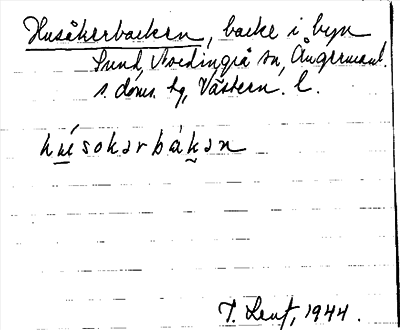 Husåkerbacken, backe i byn
Sund, Nordingrå sn, Ångermanl.
s. doms. hg, Västern. l.
húsokərbàkən
T. Leuf, 1944.